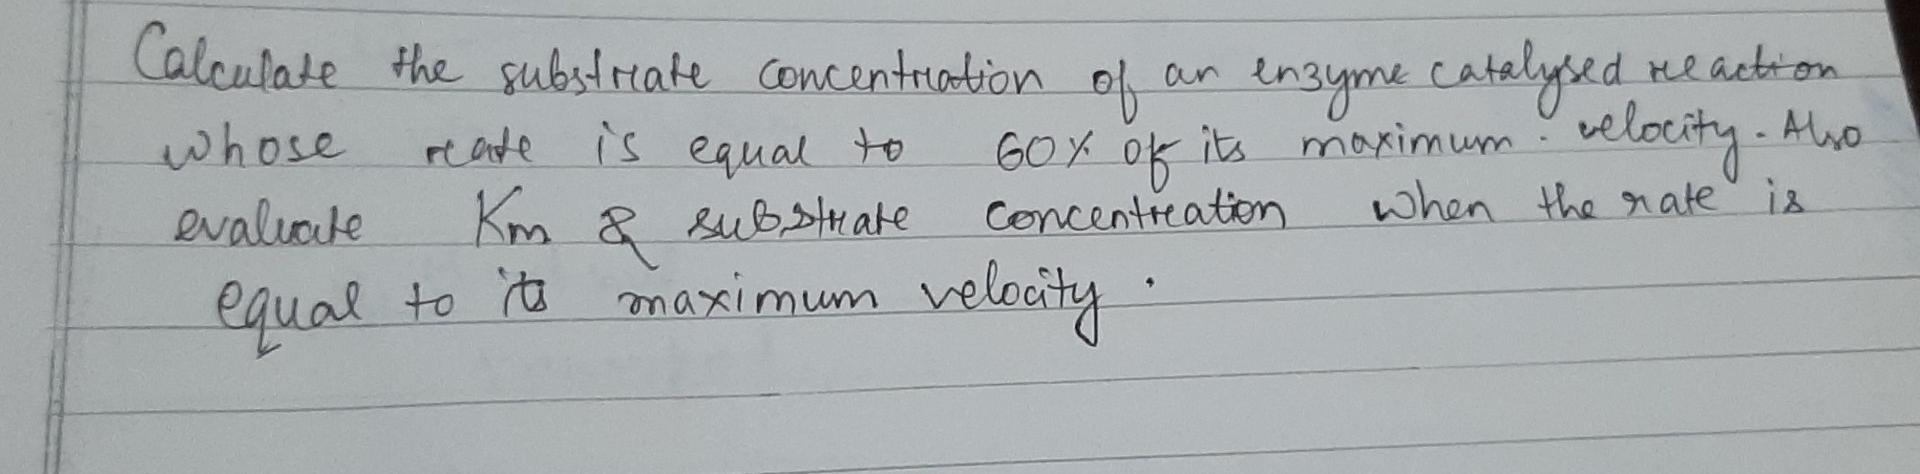 Calculate the substrate concentration of an enzyme catalysed reaction
whose rate is equal to 60% of its maximum velocity. Also
evaluate Km & substrate concentration when the rate is
equal to its maximum velocity.